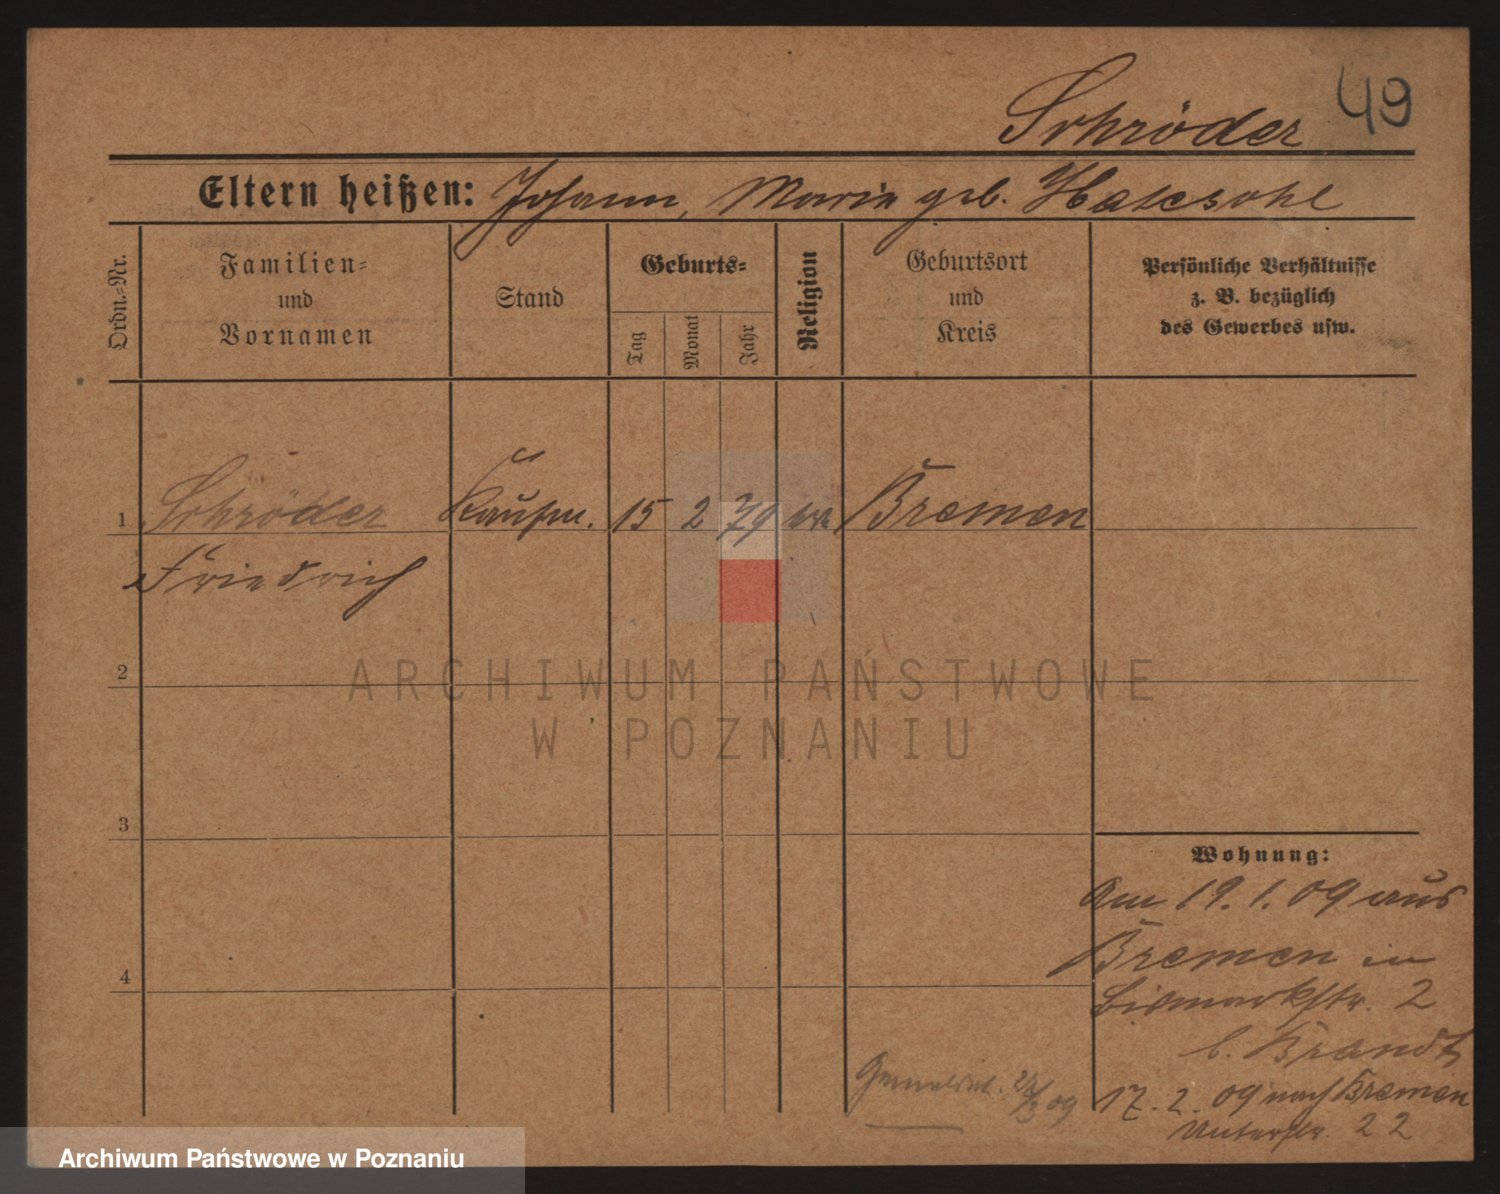 Schröder 49
Eltern heißen: Johann, Marie geb.
Ordn.-Nr.
Familien-
und
Vornamen
Stand
Geburts-
Tag
Monat
Jahr
Religion
Geburtsort
und
Kreis
Persönliche Verhältnisse
z. B. bezüglich
des Gewerbes usw.
1 Schröder Kaufm. 15 2 79 Bremen
Friedrich
2
3
4
Wohnung:
Am 19. 1. 09 aus
Bremen in
Bismarckstr. 2
b. Brandt
17. 2. 09 nach Bremen
Unterstr. 22
ARCHIWUM PAŃSTWOWE
W POZNANIU
Archiwum Państwowe w Poznaniu